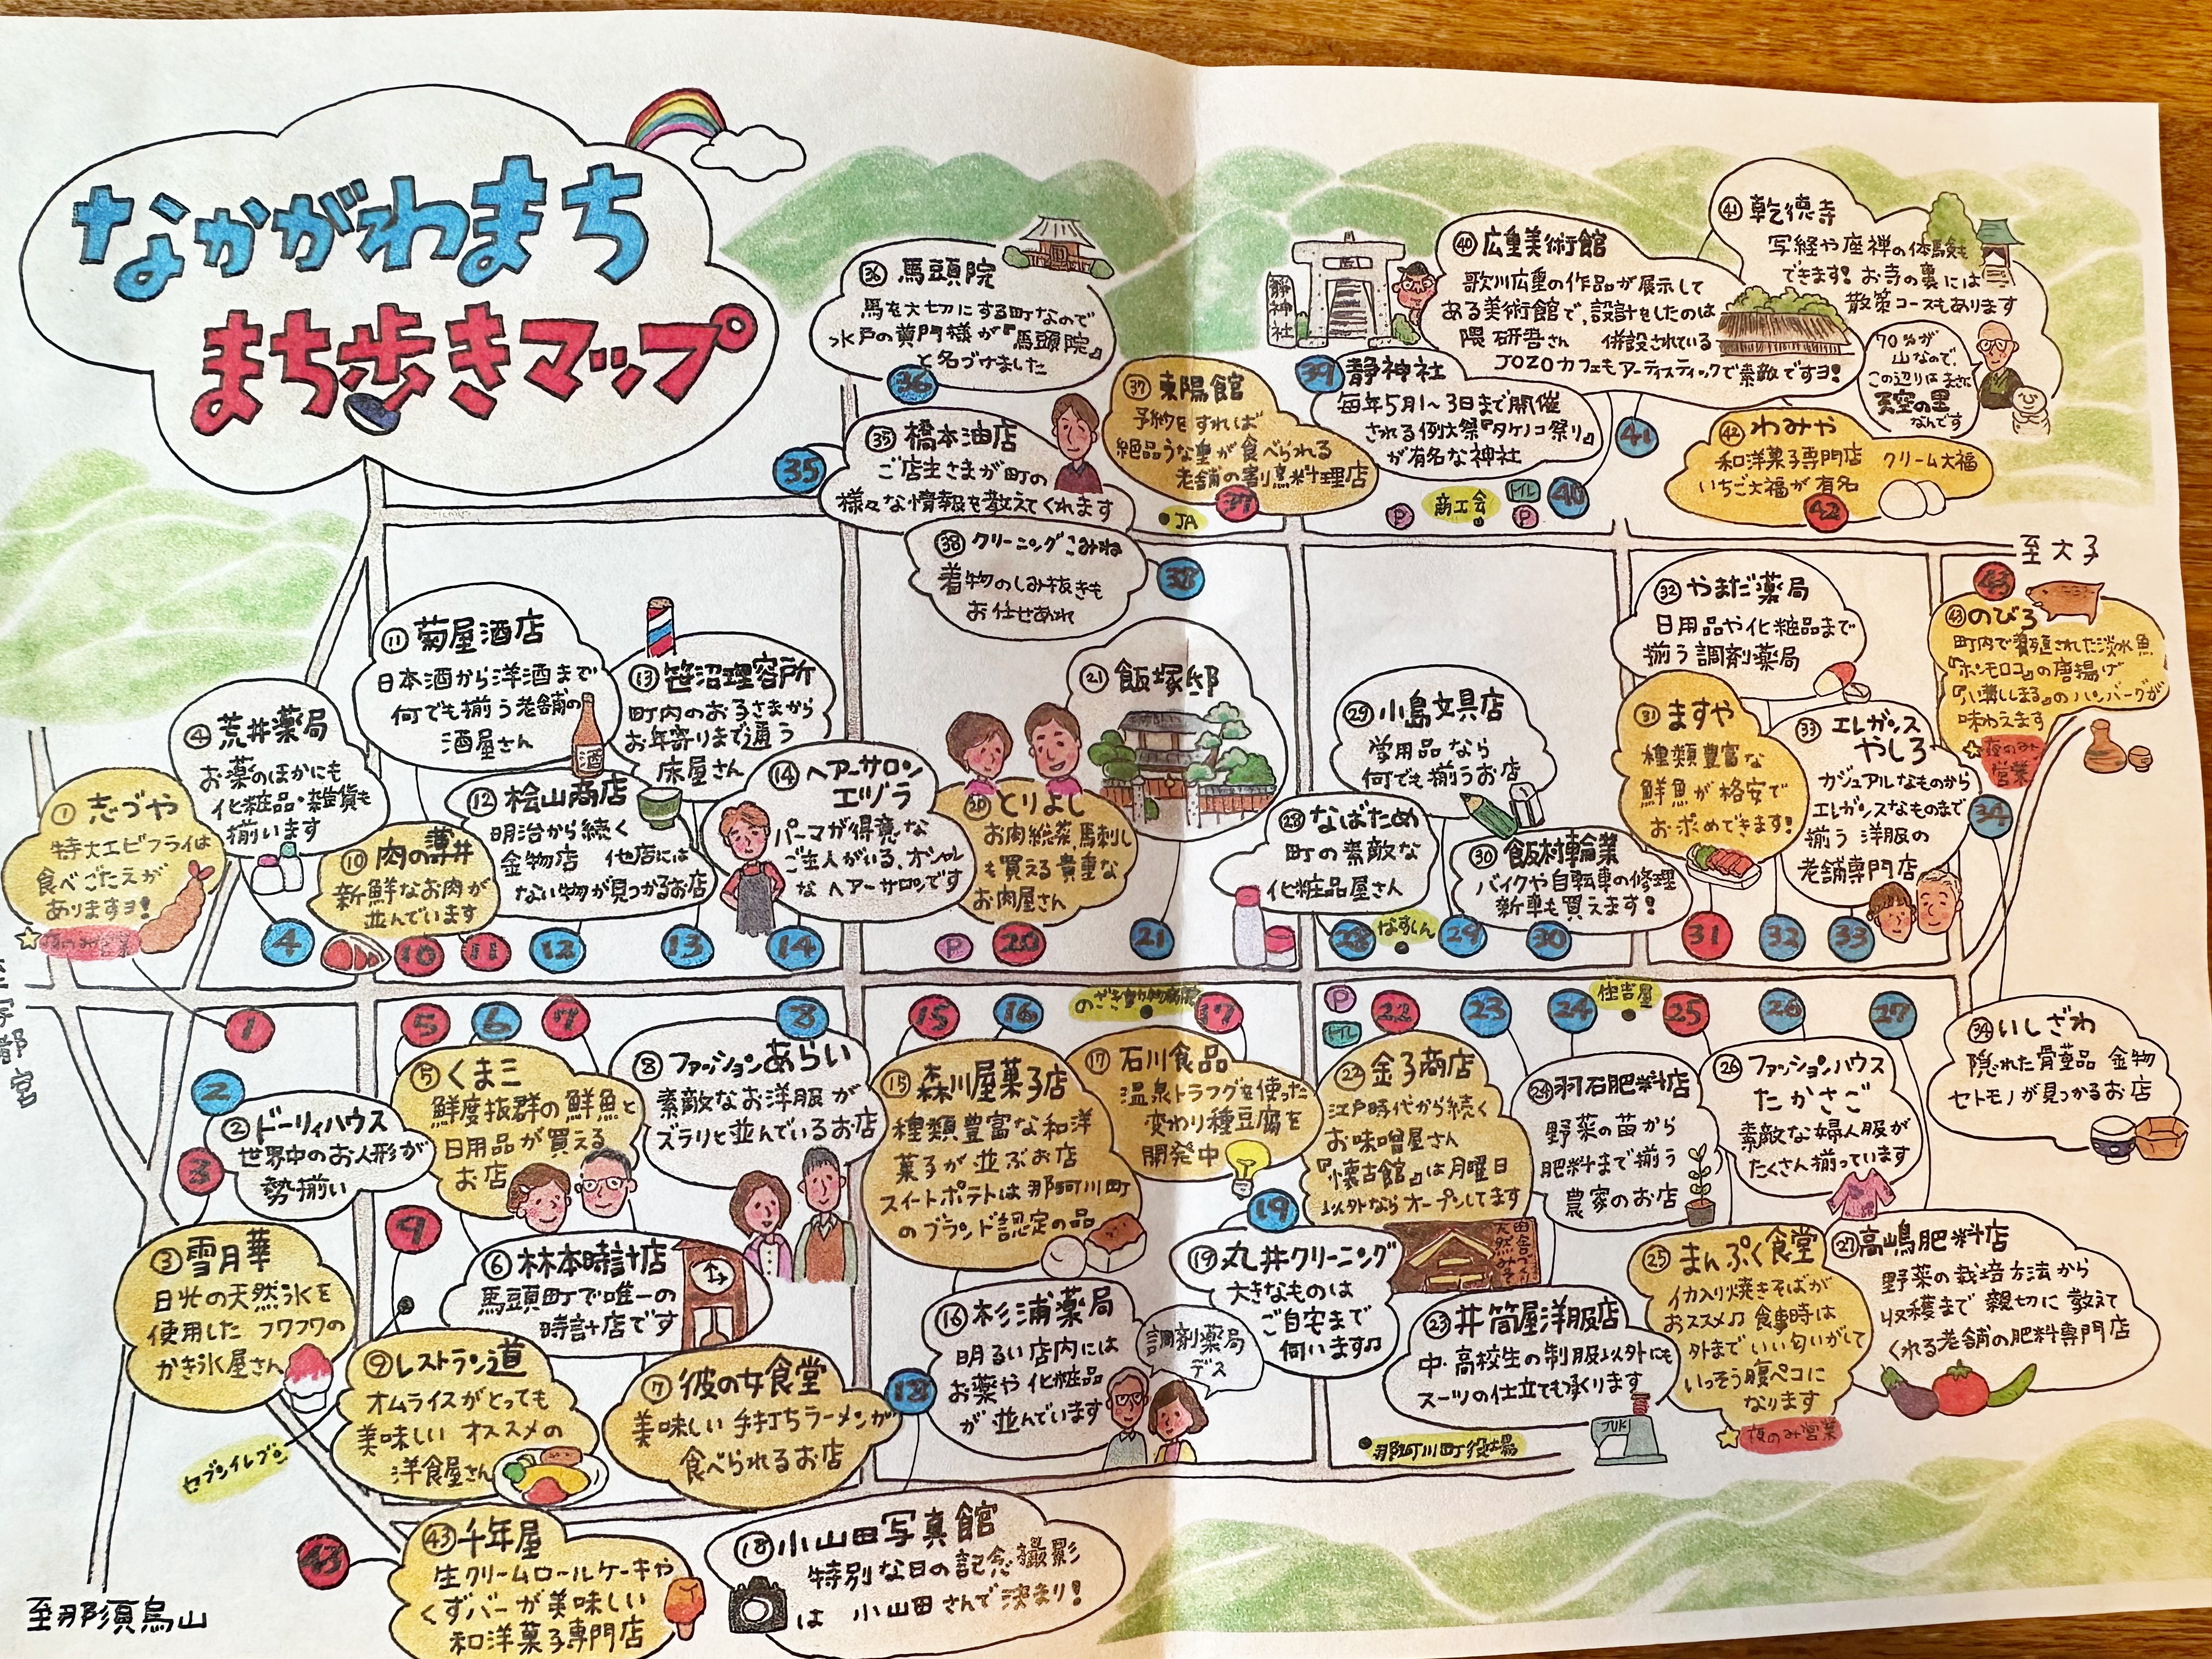 なかがわまち
まち歩きマップ
㊱ 馬頭院
馬を大切にする町なので
水戸の黄門様が『馬頭院』
と名づけました
36
㉟ 橋本油店
ご店主さまが町の
様々な情報を教えてくれます
35
㊲ 東陽館
予約をすれば
絶品うな重が食べられる
老舗の割烹料理店
37
JA
㊳ クリーニングこみね
着物のしみ抜きも
お任せあれ
38
靜神社
39
静神社
毎年5月1〜3日まで開催
される例大祭『タケノコ祭り』
が有名な神社
㊵ 広重美術館
歌川広重の作品が展示して
ある美術館で、設計をしたのは
隈研吾さん 併設されている
JOZOカフェもアーティスティックで素敵ですヨ!
㊶ 乾徳寺
写経や座禅の体験も
できます! お寺の裏には
散策コースもあります
70%が
山なので、
この辺りはまさに
天空の里
なんです
41
P
商工会
トイレ
P
40
㊷ わみや
和洋菓子専門店 クリーム大福
いちご大福が有名
42
至大子
43
㊸ のびろ
町内で養殖された淡水魚
『ホンモロコ』の唐揚げ
『八溝ししまる』のハンバーグが
味わえます
夜のみ
営業
⑪ 菊屋酒店
日本酒から洋酒まで
何でも揃う老舗の
酒屋さん
酒
⑬ 笹沼理容所
町内のお子さまから
お年寄りまで通う
床屋さん
④ 荒井薬局
お薬のほかにも
化粧品・雑貨も
揃います
① 志づや
特大エビフライは
食べごたえが
ありますヨ!
⑩ 肉の薄井
新鮮なお肉が
並んでいます
⑫ 桧山商店
明治から続く
金物店 他店には
ない物が見つかるお店
⑭ ヘアーサロン
エヅラ
パーマが得意な
ご主人がいる、オシャレ
なヘアーサロンです
⑳ とりよし
お肉総菜、馬刺し
も買える貴重な
お肉屋さん
㉑ 飯塚邸
㉙ 小島文具店
学用品なら
何でも揃うお店
㉘ なばため
町の素敵な
化粧品屋さん
㉚ 飯村輪業
バイクや自転車の修理
新車も買えます!
㉜ やまだ薬局
日用品や化粧品まで
揃う調剤薬局
㉛ ますや
種類豊富な
鮮魚が格安で
お求めできます!
㉝ エレガンス
やしろ
カジュアルなものから
エレガンスなものまで
揃う洋服の
老舗専門店
34
4
10
11
12
13
14
P
20
21
28
なすしん
29
30
31
32
33
1
5
6
7
8
15
16
のざき動物病院
17
P
トイレ
22
23
24
住吉屋
25
26
27
2
② ドーリィハウス
世界中のお人形が
勢揃い
3
③ 雪月華
日光の天然氷を
使用したフワフワの
かき氷屋さん
⑤ くまミ
鮮度抜群の鮮魚と
日用品が買える
お店
9
⑥ 林本時計店
馬頭町で唯一の
時計店です
⑧ ファッションあらい
素敵なお洋服が
ズラリと並んでいるお店
⑨ レストラン道
オムライスがとっても
美味しいオススメの
洋食屋さん
⑦ 彼の女食堂
美味しい手打ちラーメンが
食べられるお店
セブンイレブン
⑮ 森川屋菓子店
種類豊富な和洋
菓子が並ぶお店
スイートポテトは那珂川町
のブランド認定の品
⑰ 石川食品
温泉トラフグを使った
変わり種豆腐を
開発中
⑯ 杉浦薬局
明るい店内には
お薬や化粧品
が並んでいます
調剤薬局
デス
18
19
⑲ 丸井クリーニング
大きなものは
ご自宅まで
伺います♫
㉒ 金子商店
江戸時代から続く
お味噌屋さん
『懐古館』は月曜日
以外ならオープンしてます
田舎づくり
天然みそ
㉓ 井筒屋洋服店
中・高校生の制服以外にも
スーツの仕立ても承ります
JUKI
那珂川町役場
㉔ 羽石肥料店
野菜の苗から
肥料まで揃う
農家のお店
㉖ ファッションハウス
たかさご
素敵な婦人服が
たくさん揃っています
㉕ まんぷく食堂
イカ入り焼きそばが
おススメ♫ 食事時は
外までいい匂いがして
いっそう腹ペコに
なります
夜のみ営業
㉗ 高嶋肥料店
野菜の栽培方法から
収穫まで親切に教えて
くれる老舗の肥料専門店
㉞ いしざわ
隠れた骨董品 金物
セトモノが見つかるお店
43
㊸ 千年屋
生クリームロールケーキや
くずバーが美味しい
和洋菓子専門店
⑱ 小山田写真館
特別な日の記念撮影
は 小山田さんで決まり!
至那須烏山